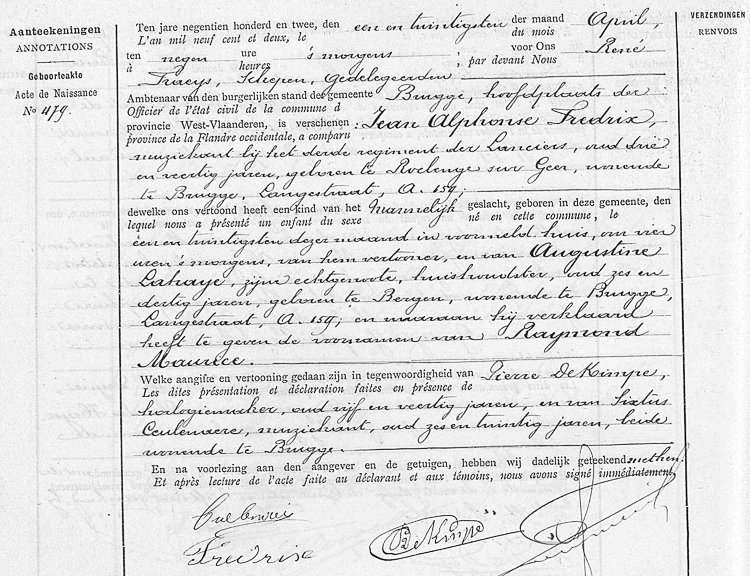 Aanteekeningen
ANNOTATIONS
Geboorteakte
Acte de Naissance
No 479.
VERZENDINGEN
RENVOIS
Ten jare negentien honderd en twee, den een en twintigsten der maand April,
L'an mil neuf cent et deux, le du mois
ten negen ure 's morgens , voor Ons René
à heures , par devant Nous
Fraeys, Schepen, Gedelegeerden
Ambtenaar van den burgerlijken stand der gemeente Brugge, hoofdplaats der
Officier de l'état civil de la commune d
provincie West-Vlaanderen, is verschenen : Jean Alphonse Fredrix,
province de la Flandre occidentale, a comparu
muziekant bij het derde regiment der Lanciers, oud drie
en veertig jaren, geboren te Roclenge sur Geer, wonende
te Brugge, Langestraat, A. 159;
dewelke ons vertoond heeft een kind van het Mannelijk geslacht, geboren in deze gemeente, den
lequel nous a présenté un enfant du sexe né en cette commune, le
een en twintigsten dezer maand in voormeld huis, om vier
uren 's morgens, van hem vertooner, en van Augustine
Lahaye, zijne echtgenoote, huishoudster, oud zes en
dertig jaren, geboren te Bergen, wonende te Brugge,
Langestraat, A. 159; en waaraan hij verklaard
heeft te geven de voornamen van Raymond
Maurice.
Welke aangifte en vertooning gedaan zijn in tegenwoordigheid van Pierre DeKimpe,
Les dites présentation et déclaration faites en présence de
horlogiemaker, oud vijf en veertig jaren, en van Sixtus
Ceulenaere, muziekant, oud zes en twintig jaren, beide
wonende te Brugge.
En na voorlezing aan den aangever en de getuigen, hebben wij dadelijk geteekend met hen.
Et après lecture de l'acte faite au déclarant et aux témoins, nous avons signé immédiatement
Fredrix
DeKimpe